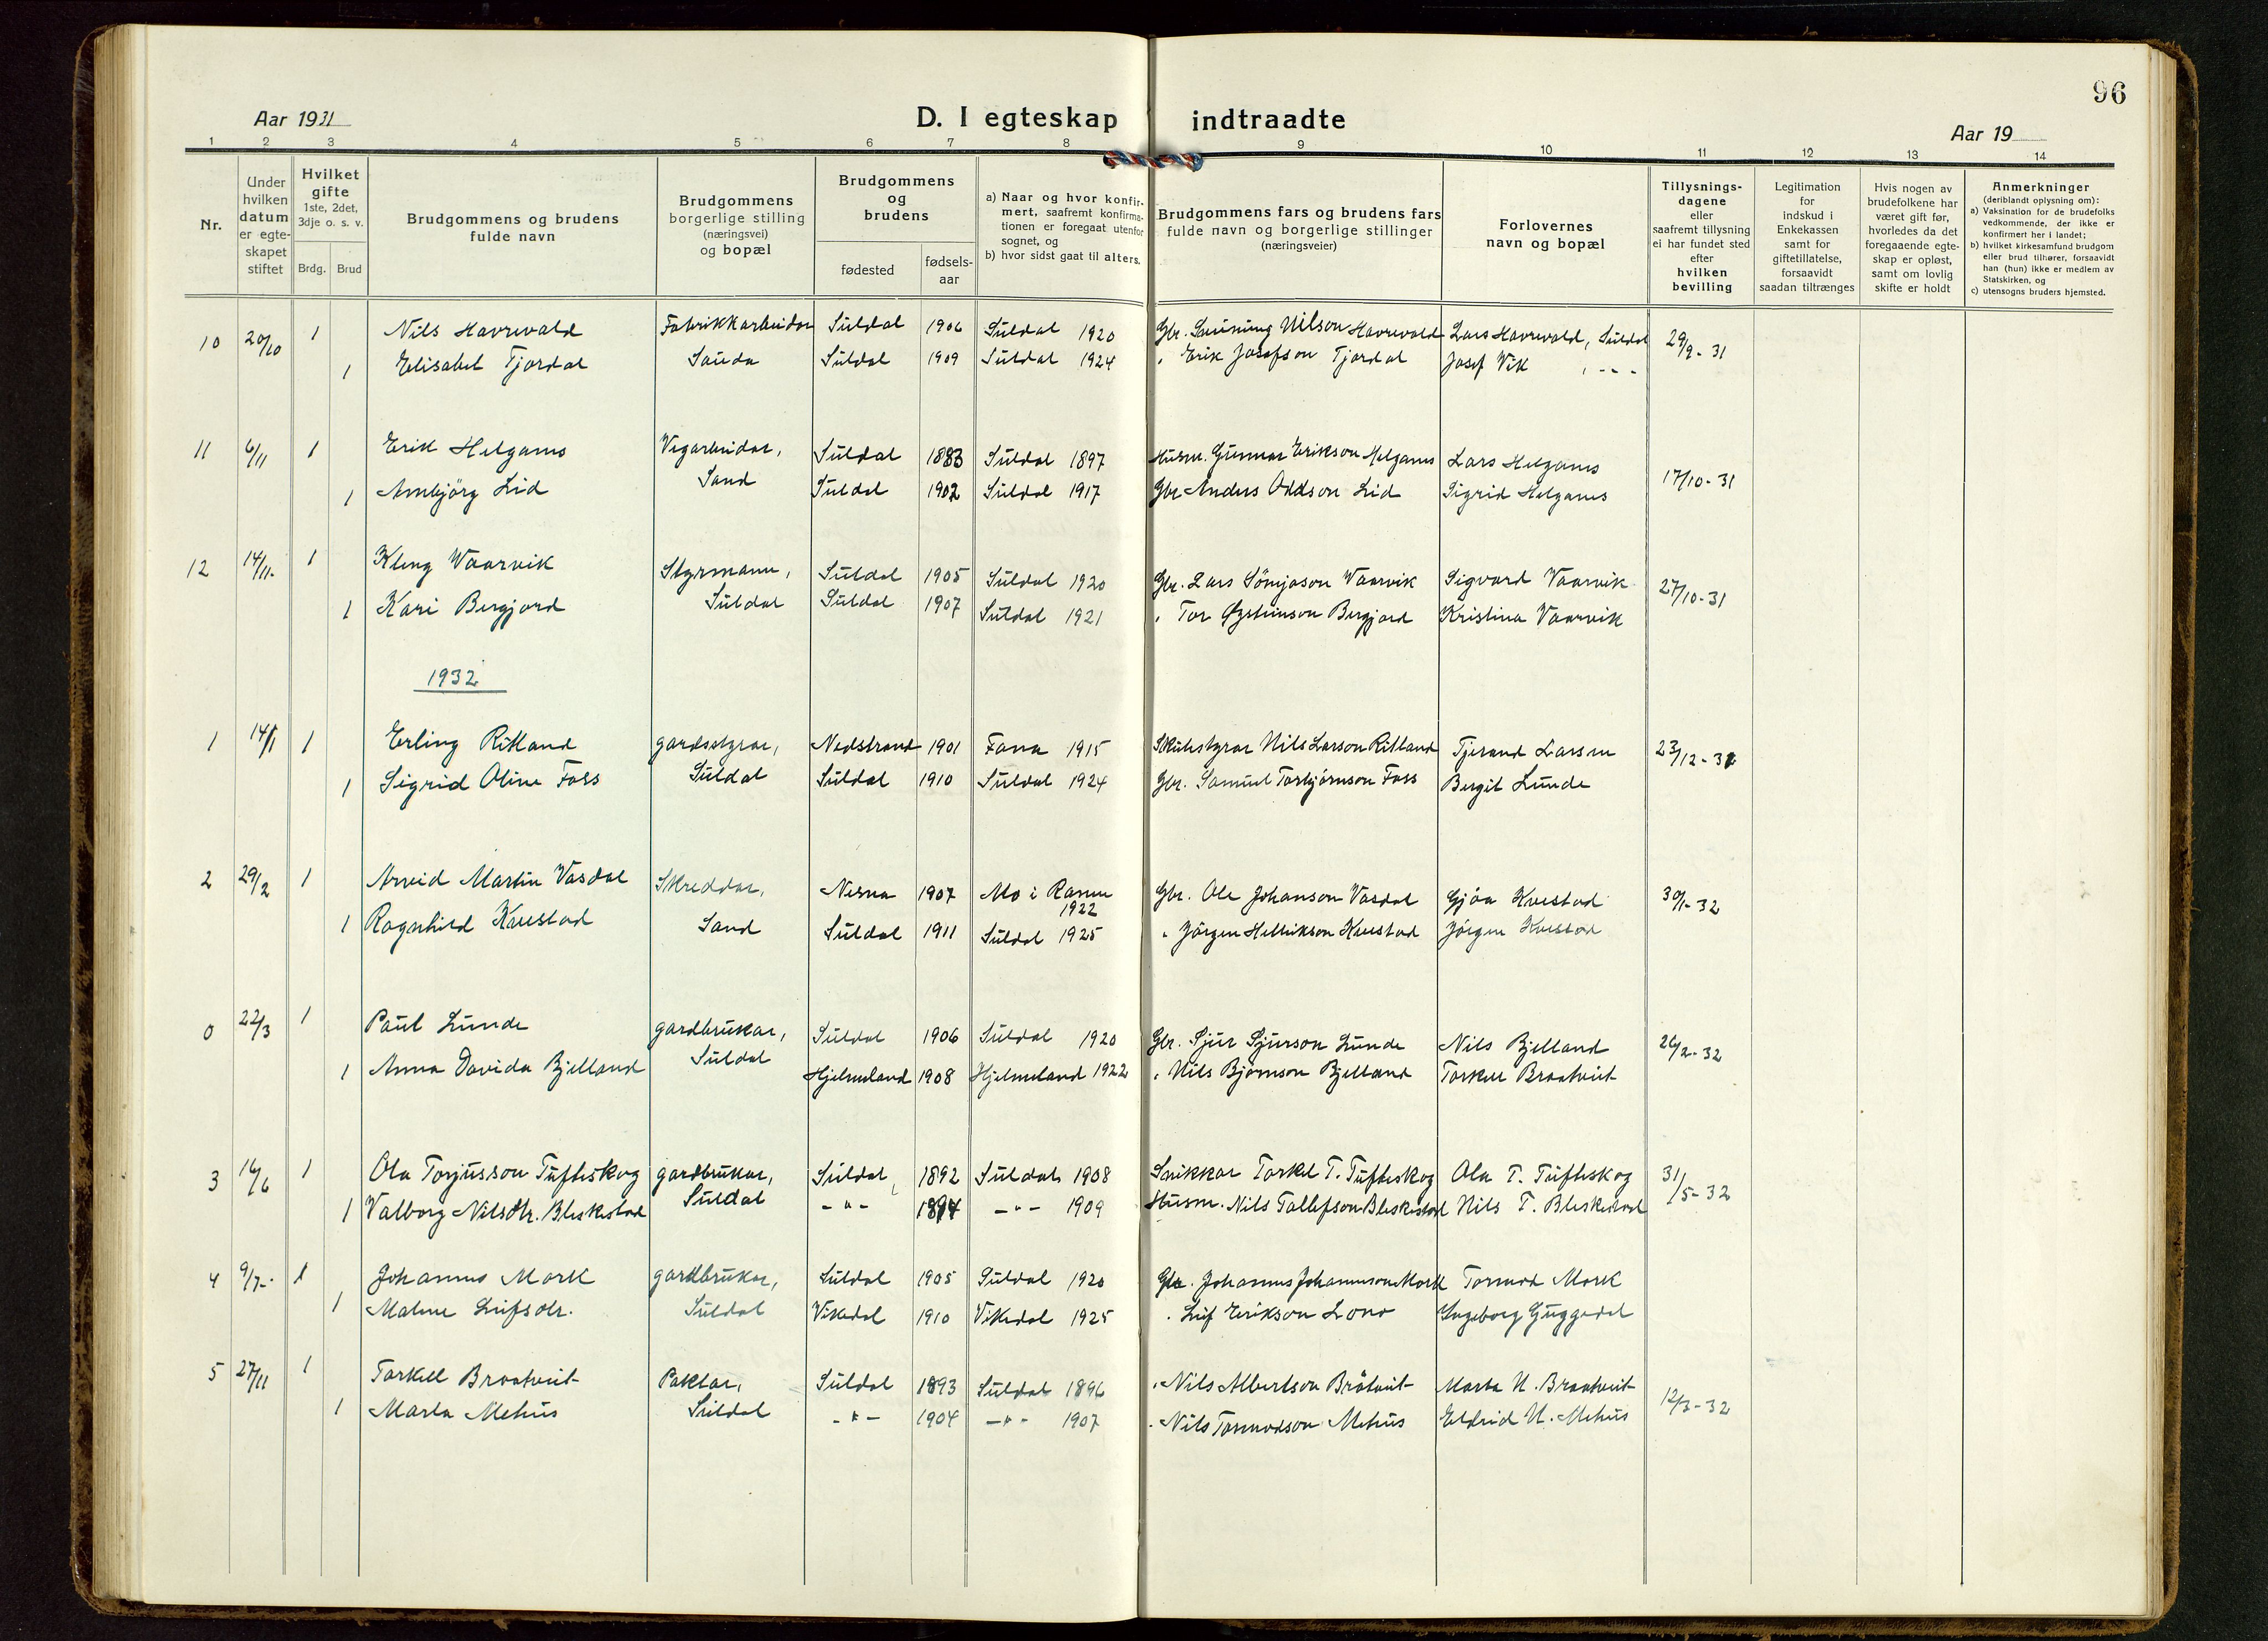 96
Aar 1931
D. I egteskap indtraadte
Aar 19
1 2 3 4 5 6 7 8 9 10 11 12 13 14
Nr.
Under hvilken datum er egteskapet stiftet
Hvilket gifte 1ste, 2det, 3dje o. s. v.
Brdg. Brud
Brudgommens og brudens fulde navn
Brudgommens borgerlige stilling (næringsvei) og bopæl
Brudgommens og brudens
fødested
fødselsaar
a) Naar og hvor konfirmert, saafremt konfirmationen er foregaat utenfor sognet, og
b) hvor sidst gaat til alters.
Brudgommens fars og brudens fars fulde navn og borgerlige stillinger (næringsveier)
Forlovernes navn og bopæl
Tillysningsdagene eller saafremt tillysning ei har fundet sted efter hvilken bevilling
Legitimation for indskud i Enkekassen samt for giftetillatelse, forsaavidt saadan tiltrænges
Hvis nogen av brudefolkene har været gift før, hvorledes da det foregaaende egteskap er opløst, samt om lovlig skifte er holdt
Anmerkninger (deriblandt oplysning om):
a) Vaksination for de brudefolks vedkommende, der ikke er konfirmert her i landet;
b) hvilket kirkesamfund brudgom eller brud tilhører, forsaavidt han (hun) ikke er medlem av Statskirken, og
c) utensogns bruders hjemsted.
10 20/10 1 Nils Havrevold Fabrikkarbeidar Suldal 1906 Suldal 1920 Gbr. Nilson Havrevold Lars Havrevold, Suldal 29/9-31
1 Elisabet Tjordal Sauda Suldal 1909 Suldal 1924 " Erik Josefson Tjordal Josef Vik , - " -
11 6/11 1 Erik Helganes Vegarbeidar, Suldal 1883 Suldal 1897 Husm. Gunnar Erikson Helganes Lars Helganes 17/10-31
1 Ambjörg Lid Sand Suldal 1902 Suldal 1917 Gbr. Anders Oddson Lid Sigrid Helganes
12 14/11- 1 Kleng Vaarvik Styrmann, Suldal 1905 Suldal 1920 Gbr. Lars Vaarvik Sigvard Vaarvik 27/10-31
1 Kari Bergjord Suldal Suldal 1907 Suldal 1921 " Tor Øysteinson Bergjord Kristina Vaarvik
1932
1 14/1 1 Erling Ritland gardsstyrar, Nedstrand 1901 Fana 1915 Skulestyrar Nils Larson Ritland Tjerand Larsen 23/12-31
1 Sigrid Oline Foss Suldal Suldal 1910 Suldal 1924 Gbr. Samuel Torbjørnson Foss Bergit Lunde
2 29/2 1 Arvid Martin Vasdal Skreddar, Nesna 1907 Mo i Rana 1922 Gbr. Ole Johanson Vasdal Gjøa Kvestad 30/1-32
1 Ragnhild Kvestad Sand Suldal 1911 Suldal 1925 " Jörgen Kvestad Jörgen Kvestad
0 22/3 1 Paul Lunde gardbrukar, Suldal 1906 Suldal 1920 Gbr. Sjur Sjurson Lunde Nils Bjelland 26/2-32
1 Anna Davida Bjelland Suldal Hjelmeland 1908 Hjelmeland 1922 " Nils Bjørnson Bjelland Torkell Braatveit
3 16/6 1 Ola Torjusson Tufteskog gardbrukar, Suldal 1892 Suldal 1908 Snikkar Torkel T. Tufteskog Ola T. Tufteskog 31/5-32
1 Valborg Nilsdtr. Bleskestad Suldal - " - 1894 - " - 1909 Husm. Nils Tollefson Bleskestad Nils T. Bleskestad
4 9/7- 1 Johannes Mork gardbrukar, Suldal 1905 Suldal 1920 Gbr. Johannes Johannson Mork Tormod Mork
1 Malene Leifsdtr. Suldal Vikedal 1910 Vikedal 1925 " Leif Erikson Ingeborg Guggedal
5 27/11 1 Torkell Braatveit Suldal 1893 Suldal 1896 " Nils Albertson Bråtveit Marta N. Braatveit 12/3-32
1 Marta Mehus Suldal - " - 1904 - " - 1907 " Nils Tormodson Mehus Eldrid N. Mehus